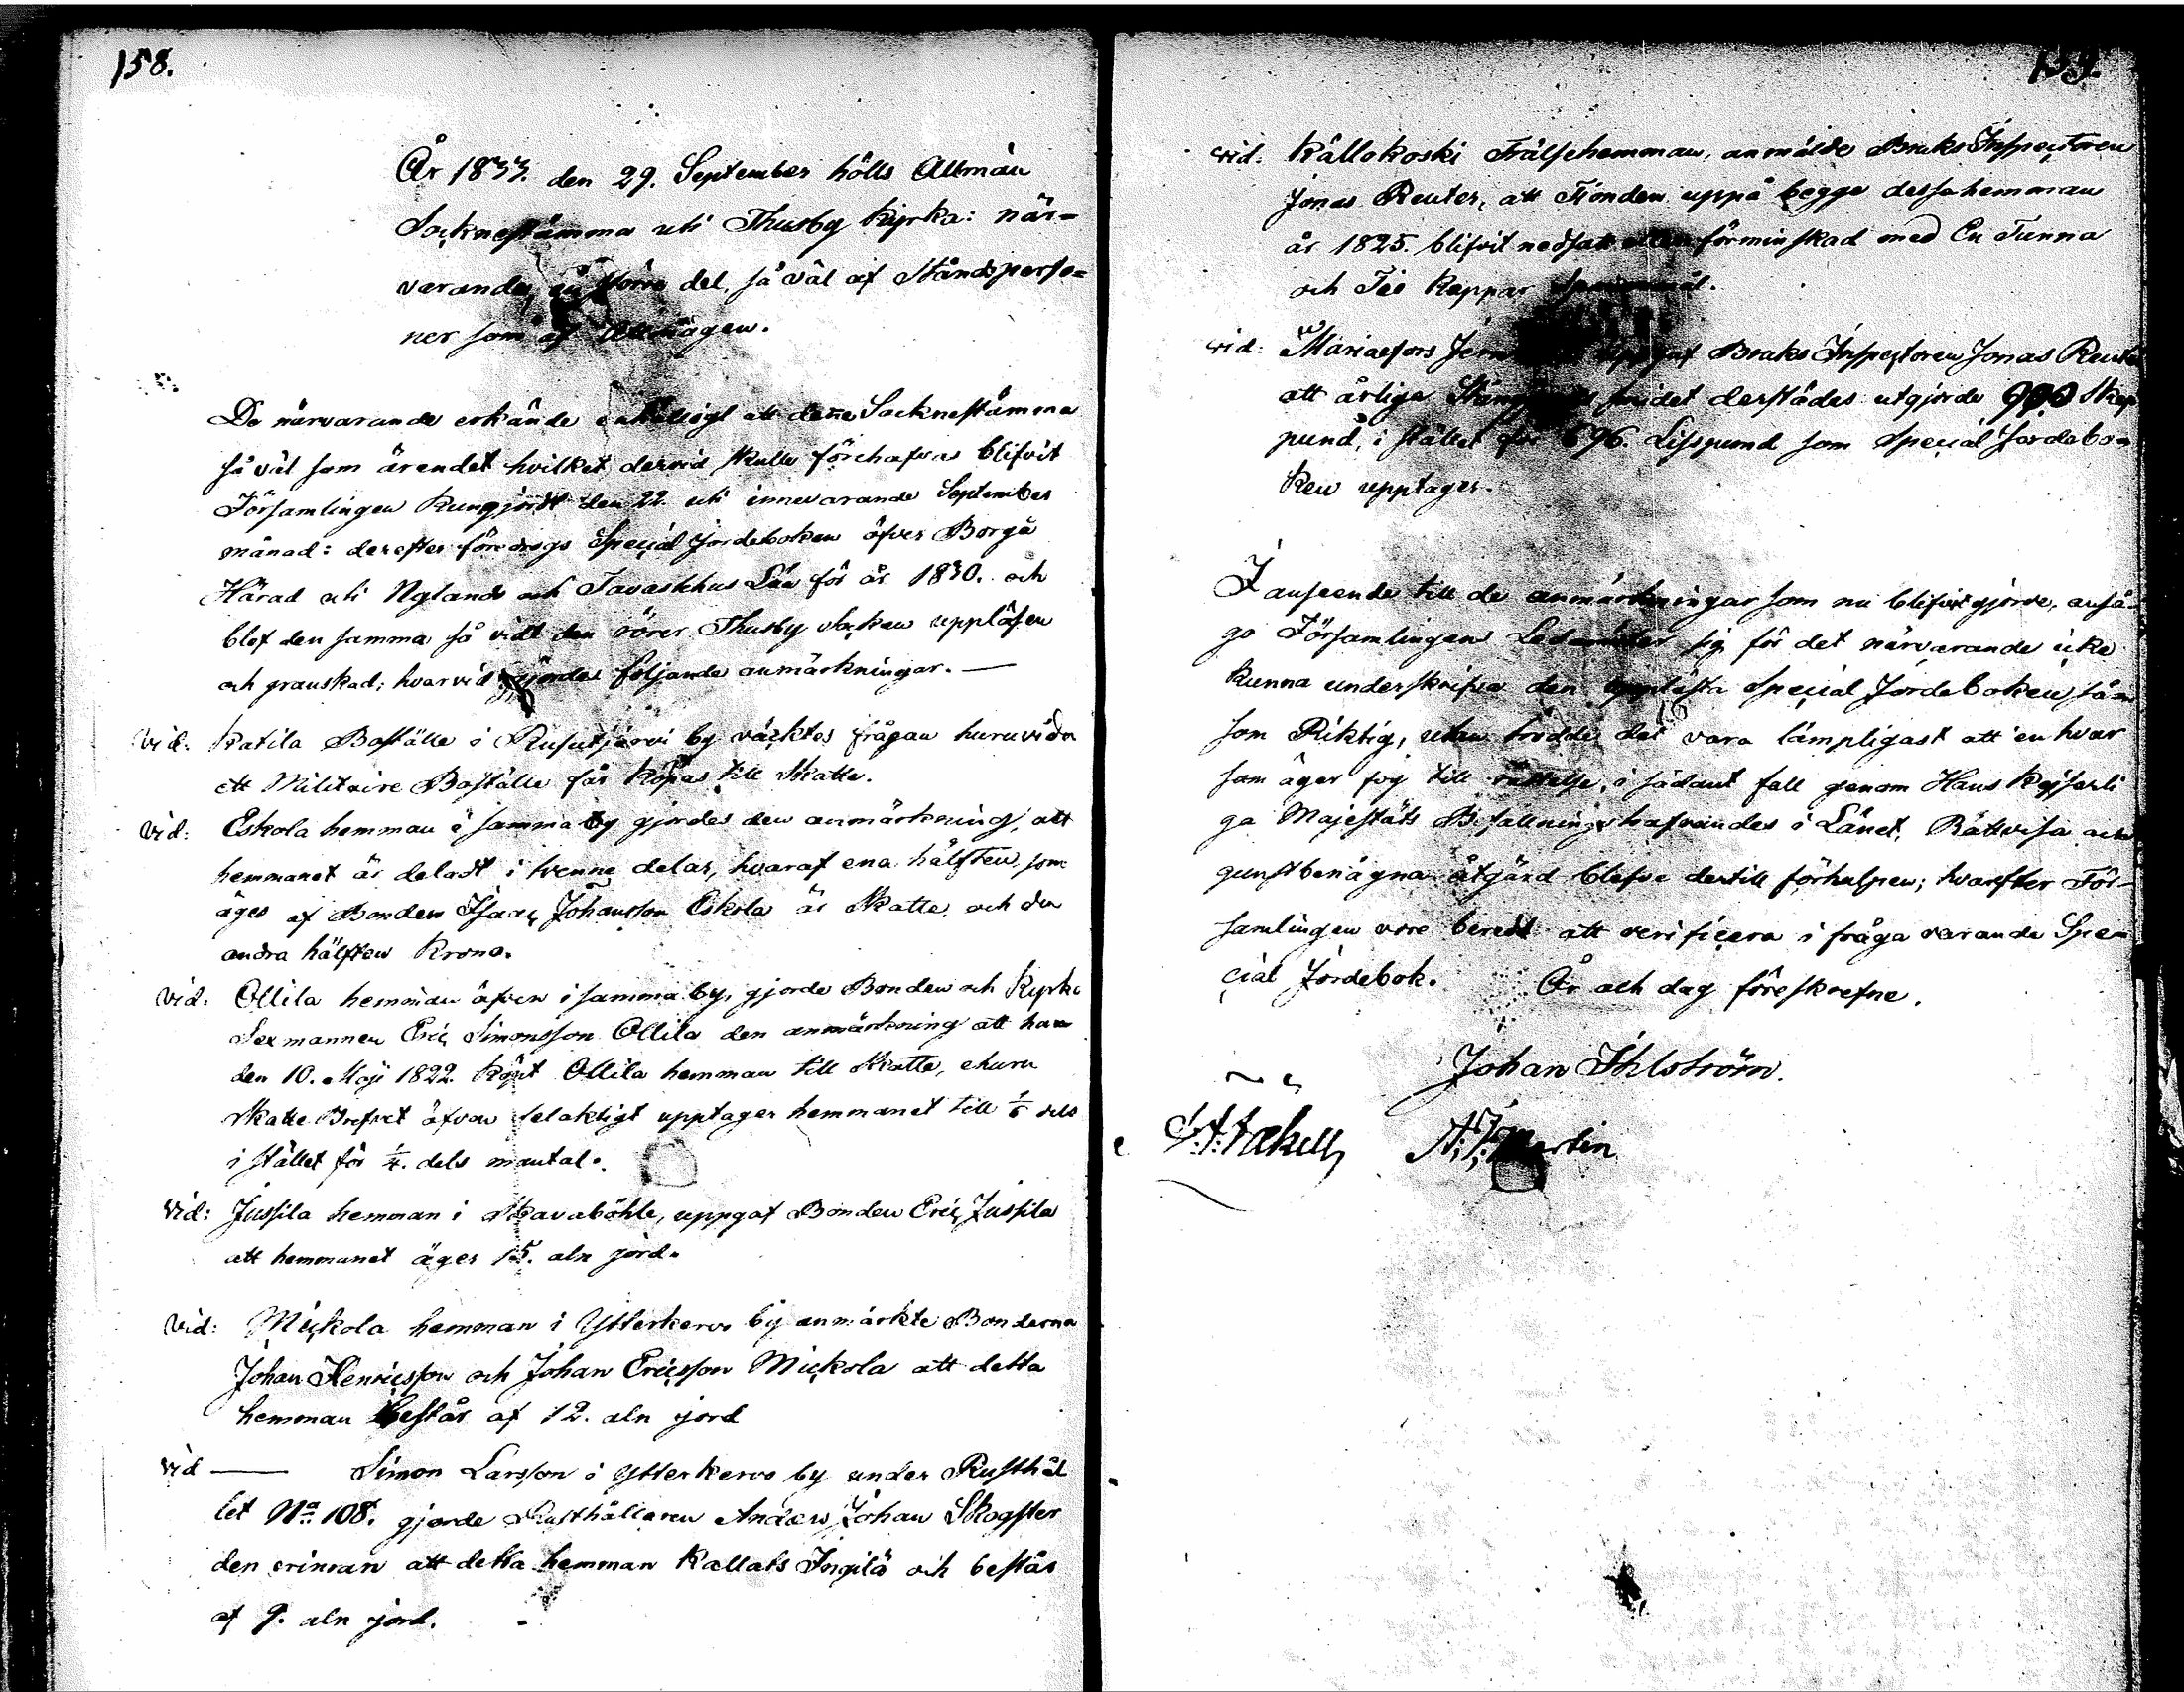 158.
År 1833. den 29. September hölls Allmän
Socknestämma uti Thusby Kyrka: när-
varande, en större del, så väl af Ståndsperso-
ner som af Allmogen.
De närvarande erkände enhälligt att denne Socknestämma
så väl som ärendet hvilket dervid skulle förehafvas blifvit
Församlingen kungjordt den 22. uti innevarande September
månad: derefter föredrogs Special Jordeboken öfver Borgå
Härad uti Nylands och Tavastehus Län för år 1830. och
blef den samma så vidt den rörer Thusby Socken uppläsen
och granskad; hvarvid gjordes följande anmärkningar. —
vid: Katila Boställe i Rusutjärvi by väcktes frågan huruvida
ett Militaire Boställe får köpas till Skatte.
vid: Eskola hemman i samma by gjordes den anmärkning, att
hemmanet är deladt i tvenne delar, hvaraf ena hälften, som
äges af Bonden Isaac Johansson Eskola är Skatte, och den
andra hälften Krono.
vid: Ollila hemman äfven i samma by, gjorde Bonden och Kyrko
Sexmannen Eric Simonsson Ollila den anmärkning att han
den 10. Maji 1822. köpt Ollila hemman till Skatte, ehuru
Skatte Brefvet äfven felaktigt upptager hemmanet till 1/6 dels
i stället för 1/4. dels mantal.
vid: Jussila hemman i Skavaböhle, uppgaf Bonden Eric Jussila
att hemmanet äger 15. aln jord.
vid: Mickola hemman i Ytterkervo by anmärkte Bönderna
Johan Henricsson och Johan Ericsson Mickola att detta
hemman består af 12. aln jord
vid — Simon Larsson i Ytterkervo by under Rusthål
let No 108. gjorde Rusthållaren Anders Johan Skogster
den erinran att detta hemman kallats Ingilä och består
af 9. aln jord.
159.
vid: Källokoski Frälsehemman, anmälde Bruks Inspectoren
Jonas Reuter, att Tionden uppå begge dessa hemman
år 1825. blifvit nedsatt eller förminskad med En Tunna
och Tio Kappar Spannmål.
vid: Mariaefors uppgaf Bruks Inspectoren Jonas Reuter
att årliga smidet derstädes utgjorde 900 Skep
pund, i stället för 696. Lisspund som Special Jordebo-
ken upptager.
I anseende till de anmärkningar som nu blifvit gjorde, anså-
go Församlingens Ledamöter sig för det närvarande icke
kunna underskrifva den upplästa Special Jordeboken, så-
som Riktig, utan trodde det vara lämpligast att en hvar
som äger fog till rättelse, i sådant fall genom Hans Kejserli
ga Majestäts Befallningshafvandes i Länet, Rättvisa och
gunstbenägna åtgärd blefve dertill förhulpen; hvarefter För-
samlingen vore beredt att verificera i fråga varande Spe-
cial Jordebok. År och dag föreskrefne.
Johan Ihlström.
A. J. Martin